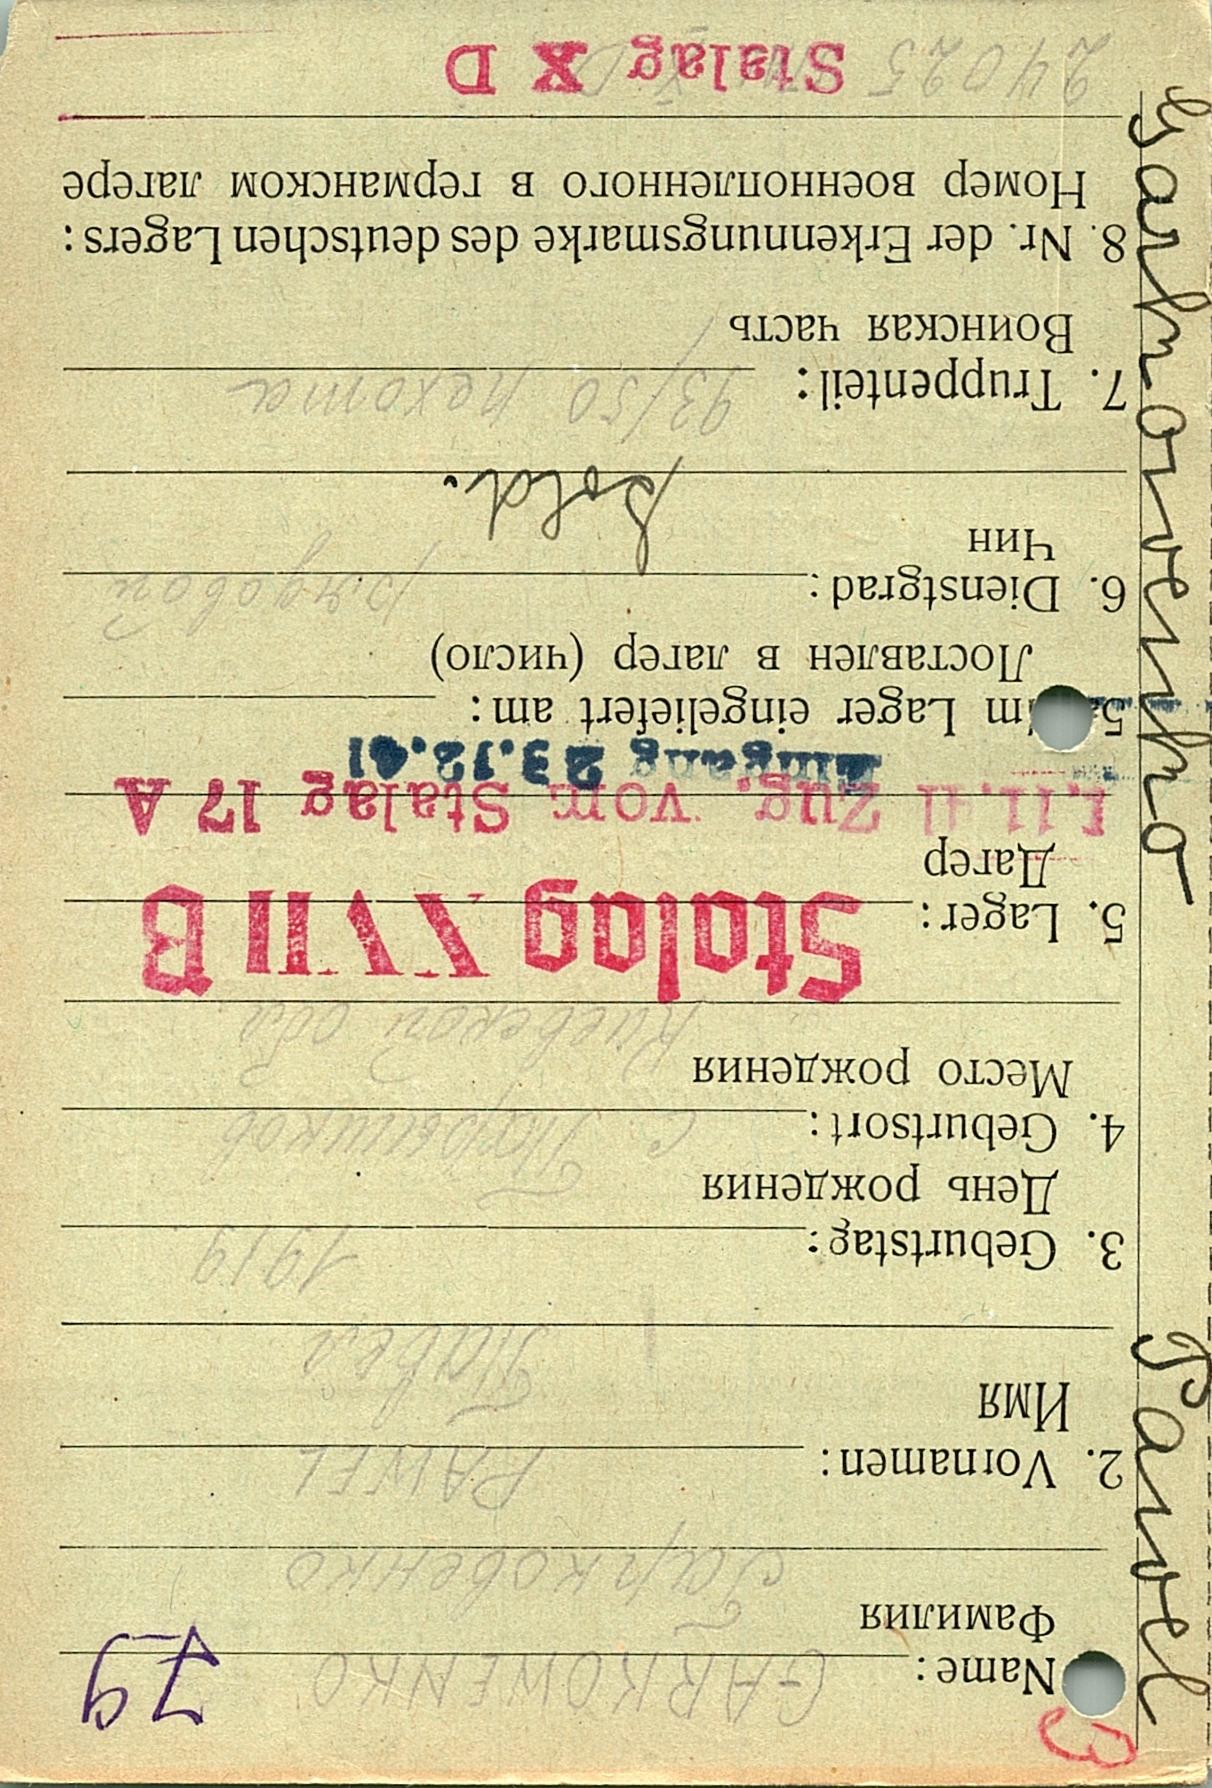 79
1. Name: GARKOWENKO
Фамилия
Гарковенко
2. Vornamen: PAWEL
Имя
Павел
3. Geburtstag: 1919
День рождения
4. Geburtsort: с
Место рождения
Киевской обл
Stalag XVII B
5. Lager:
Лагер
1.11.41 Zug. vom Stalag 17 A
Eingang 23.12.41
5a. Im Lager eingeliefert am:
Лоставлен в лагер (число)
6. Dienstgrad: рядовой
Чин
Sold.
7. Truppenteil: 93/50 пехота
Воинская часть
8. Nr. der Erkennungsmarke des deutschen Lagers:
Номер военнопленного в германском лагере
24025 Stalag X D
Garkowenko Pawel